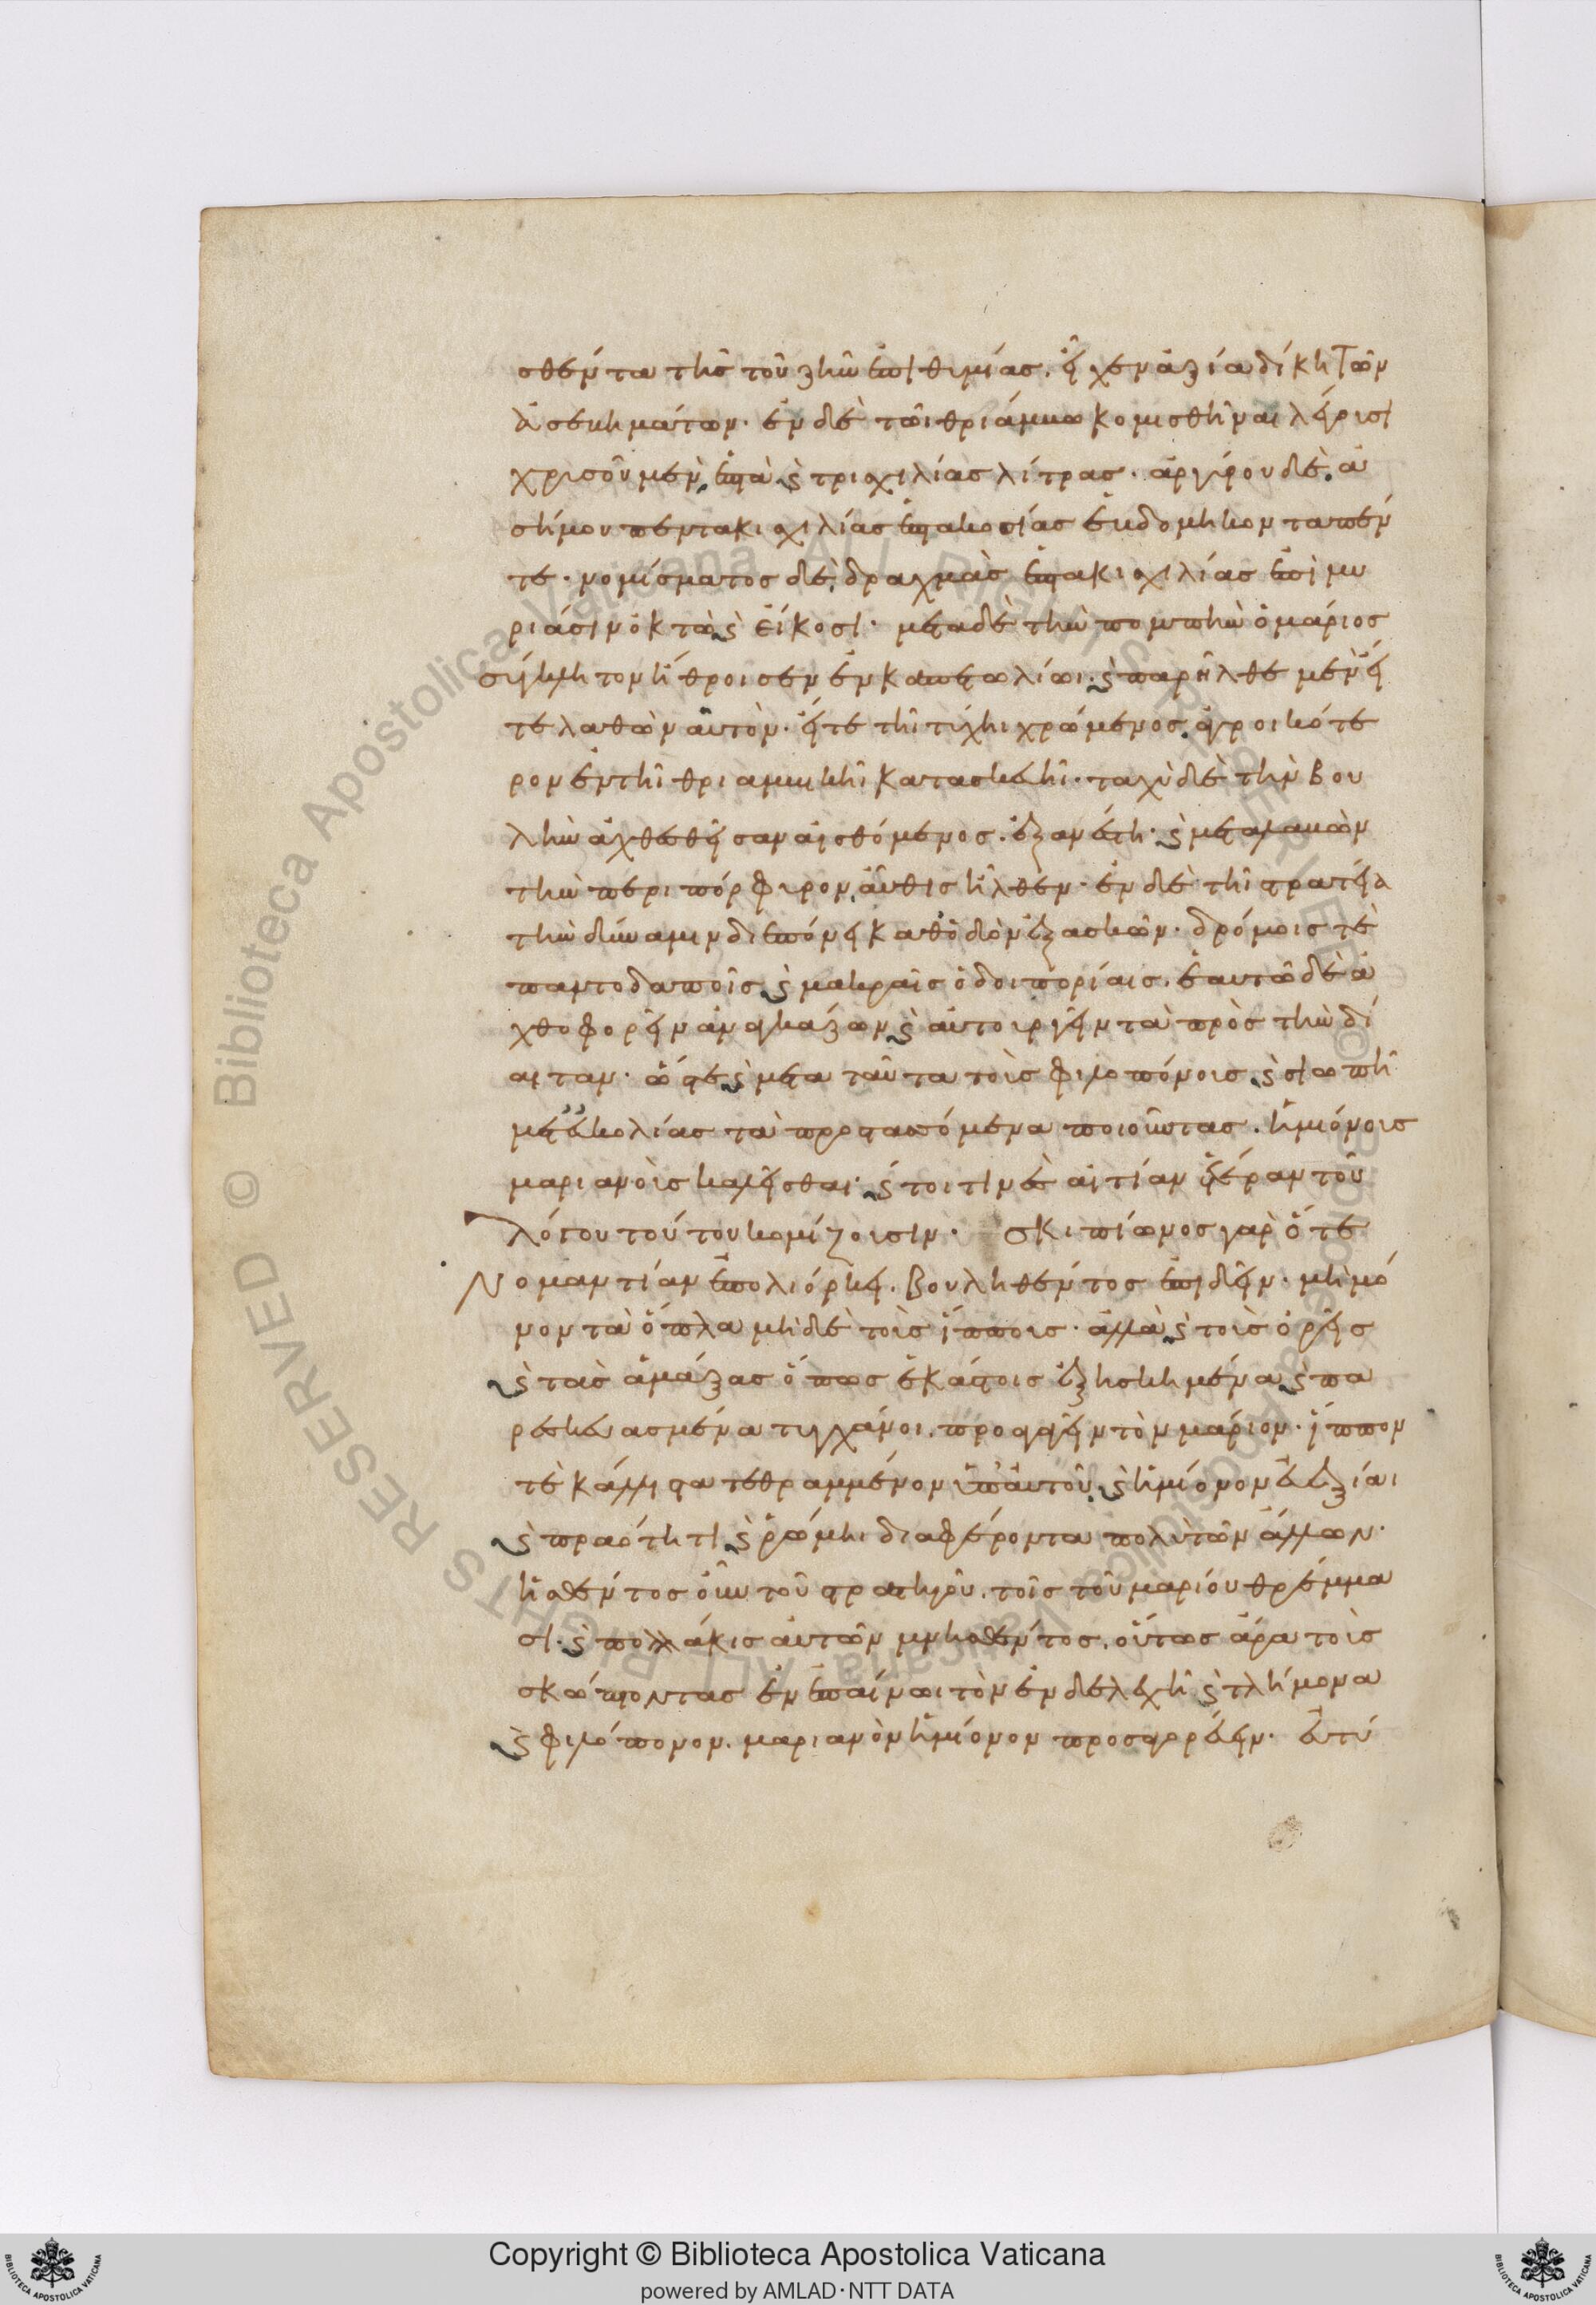 σθέντα τῆς τοῦ ζῆν ἐπιθυμίας. εἶχεν ἀξία δίκη τῶν
ἀσεβημάτων· ἐν δὲ τῶι θριάμβω κομισθῆναι λέγουσι
χρυσοῦ μὲν, ἑπτὰ ϗ τρισχιλίας λίτρας· ἀργύρου δὲ, ἀ
σήμου πεντακισχιλίας ἑπτακοσίας ἑβδομήκοντα πέν
τε· νομίσματος δὲ, δραχμὰς ἑπτακισχιλίας ἐπὶ μυ
ριάσιν ὀκτὼ ϗ εἴκοσι· μετα δὲ τὴν πομπὴν ὁ μάριος
σύγκλητον ἤθροισεν ἐν καπετωλίωι. ϗ παρῆλθε μὲν εἴ
τε λαθὼν αὑτὸν· εἴτε τῆι τύχηι χρώμενος, ἀγροικότε
ρον ἐν τῆι θριαμβικῆι κατασκευῆι· ταχὺ δὲ τὴν βου
λὴν ἀχθεσθεῖσαν αἰσθόμενος. ἐξανέστη· ϗ μεταλαβὼν
τὴν περιπόρφυρον, αὖθις ἦλθεν· ἐν δὲ τῆι στρατείαι
τὴν δύναμιν διεπόνει καθ' ὁδὸν ἐξασκῶν· δρόμοις τὲ
παντοδαποῖς ϗ μακραῖς ὁδοιπορίαις. ἑαυτῶ δὲ ἀ
χθοφορεῖν ἀναγκάζων ϗ αὐτουργεῖν τὰ πρὸς τὴν δί
αιταν· ὥστε ϗ μετα ταῦτα τοὺς φιλοπόνους, ϗ σιωπῆι
μετ' εὐκολίας τὰ προστασσόμενα ποιοῦντας. ἡμιόνους
μαριανοὺς καλεῖσθαι· ϗ τοι τινὲς αἰτίαν ἑτέραν τοῦ
λόγου τούτου κομίζουσιν· σκιπίωνος γὰρ ὅτε
Νομαντίαν ἐπολιόρκει. βουληθέντος ἐπιδεῖν· μὴ μό
νον τὰ ὅπλα μηδὲ τοὺς ἵππους· ἀλλὰ ϗ τοὺς ὀρεῖς
ϗ τὰς ἁμάξας ὅπως ἑκάστοις ἐξησκημένα ϗ πα
ρεσκευασμένα τυγχάνοι. προαγαγεῖν τὸν μάριον· ἵππον
τὲ κάλλιστα τεθραμμένον ὑπ' αὐτοῦ, ϗ ἡμίονον εὐεξίαι
ϗ πραότητι ϗ ῥώμηι διαφέροντα πολὺ τῶν ἄλλων·
ἡσθέντος οὖν τοῦ στρατηγοῦ. τοῖς τοῦ μαρίου θρέμμα
σι· ϗ πολλάκις αὐτῶν μνησθέντος, οὕτως ἄρα τοὺς
σκώπτοντας ἐν ἐπαίνωι τὸν ἐνδελεχῆ ϗ τλήμονα
ϗ φιλόπονον. μαριανὸν ἡμίονον προσαγορεύειν· εὐτυ
Copyright © Biblioteca Apostolica Vaticana
powered by AMLAD·NTT DATA